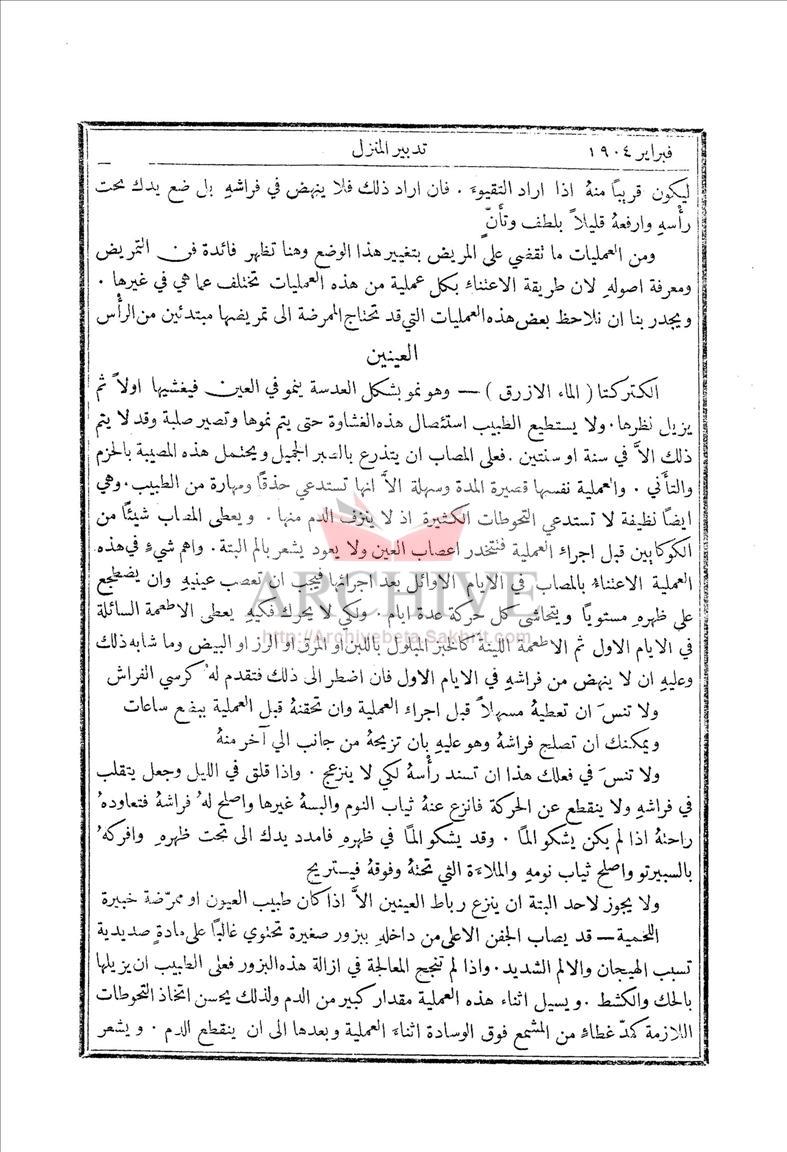 فبراير ١٩٠٤ تدبير المنزل
ليكون قريبًا منهُ اذا اراد التقيوءَ . فان اراد ذلك فلا ينهض في فراشهِ بل ضع يدك تحت
رأْسهِ وارفعهُ قليلاً بلطف وتأَنٍّ
ومن العمليات ما نقضي على المريض بتغيير هذا الوضع وهنا تظهر فائدة فن التمريض
ومعرفة اصولهِ لان طريقة الاعتناء بكل عملية من هذه العمليات تختلف عما هي في غيرها .
ويجدر بنا ان نلاحظ بعض هذه العمليات التي قد تحتاج الممرضة الى تمريضها مبتدئين من الرأْس
العينين
الكتركتا ( الماء الازرق ) — وهو نمو بشكل العدسة ينمو في العين فيغشيها اولاً ثم
يزيل نظرها . ولا يستطيع الطبيب استئصال هذه الغشاوة حتى يتم نموها وتصير صلبة وقد لا يتم
ذلك الاَّ في سنة او سنتين . فعلى المصاب ان يتذرع بالصبر الجميل ويحتمل هذه المصيبة بالحزم
والتأني . والعملية نفسها قصيرة المدة وسهلة الاَّ انها تستدعي حذقًا ومهارة من الطبيب . وهي
ايضًا نظيفة لا تستدعي التحوطات الكثيرة اذ لا ينزف الدم منها . ويعطى المصاب شيئًا من
الكوكايين قبل اجراء العملية فتتخدر اعصاب العين ولا يعود يشعر بالم البتة . واهم شيءٍ في هذه
العملية الاعتناءُ بالمصاب في الايام الاوائل بعد اجرائها فيجب ان تعصب عينيهِ وان يضطجع
على ظهرهِ مستويًا ويتحاشى كل حركة عدة ايام . ولكي لا يحرك فكيهِ يعطى الاطعمة السائلة
في الايام الاول ثم الاطعمة اللينة كالخبز المبلول باللبن او المرق او الرز او البيض وما شابه ذلك
وعليهِ ان لا ينهض من فراشهِ في الايام الاول فان اضطر الى ذلك فتقدم لهُ كرسي الفراش
ولا تنسَ ان تعطيهُ مسهلاً قبل اجراء العملية وان تحقنهُ قبل العملية ببضع ساعات
ويمكنك ان تصلح فراشهُ وهو عليهِ بان تزيحهُ من جانب الى آخر منهُ
ولا تنسَ في فعلك هذا ان تسند رأْسهُ لكي لا ينزعج . واذا قلق في الليل وجعل يتقلب
في فراشهِ ولا ينقطع عن الحركة فانزع عنهُ ثياب النوم والبسهُ غيرها واصلح لهُ فراشهُ فتعاودهُ
راحتهُ اذا لم يكن يشكو المًا . وقد يشكو المًا في ظهرهِ فامدد يدك الى تحت ظهرهِ وافركهُ
بالسبيرتو واصلح ثياب نومهِ والملاءة التي تحتهُ وفوقهُ فيستريح
ولا يجوز لاحد البتة ان ينزع رباط العينين الاَّ اذا كان طبيب العيون او ممرّضة خبيرة
اللحمية — قد يصاب الجفن الاعلى من داخلهِ ببزور صغيرة تحتوي غالبًا على مادةٍ صديدية
تسبب الهيجان والالم الشديد . واذا لم تنجح المعالجة في ازالة هذه البزور فعلى الطبيب ان يزيلها
بالحك والكشط . ويسيل اثناء هذه العملية مقدار كبير من الدم ولذلك يحسن اتخاذ التحوطات
اللازمة كمدّ غطاءٍ من المشمع فوق الوسادة اثناءَ العملية وبعدها الى ان ينقطع الدم . ويشعر
ARCHIVE
http://Archivebeta.Sakhrit.com